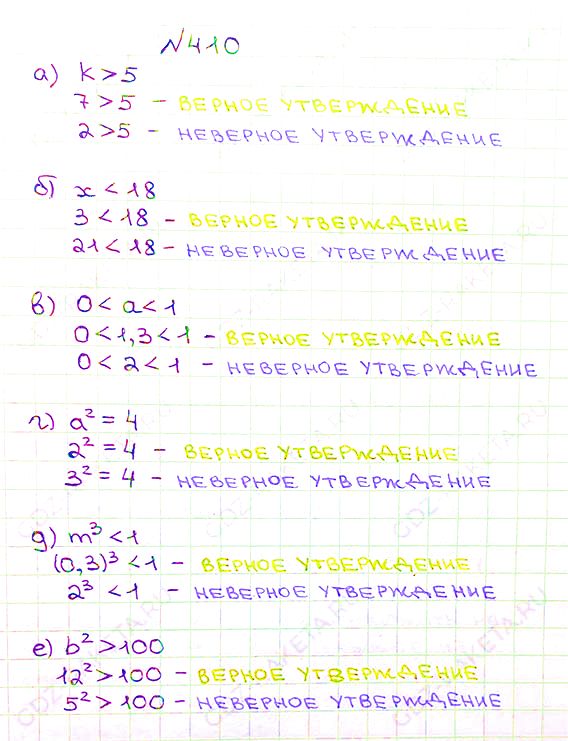 №410
а) k > 5
7 > 5 - ВЕРНОЕ УТВЕРЖДЕНИЕ
2 > 5 - НЕВЕРНОЕ УТВЕРЖДЕНИЕ
б) x < 18
3 < 18 - ВЕРНОЕ УТВЕРЖДЕНИЕ
21 < 18 - НЕВЕРНОЕ УТВЕРЖДЕНИЕ
в) 0 < a < 1
0 < 1,3 < 1 - ВЕРНОЕ УТВЕРЖДЕНИЕ
0 < 2 < 1 - НЕВЕРНОЕ УТВЕРЖДЕНИЕ
г) a² = 4
2² = 4 - ВЕРНОЕ УТВЕРЖДЕНИЕ
3² = 4 - НЕВЕРНОЕ УТВЕРЖДЕНИЕ
д) m³ < 1
(0,3)³ < 1 - ВЕРНОЕ УТВЕРЖДЕНИЕ
2³ < 1 - НЕВЕРНОЕ УТВЕРЖДЕНИЕ
е) b² > 100
12² > 100 - ВЕРНОЕ УТВЕРЖДЕНИЕ
5² > 100 - НЕВЕРНОЕ УТВЕРЖДЕНИЕ